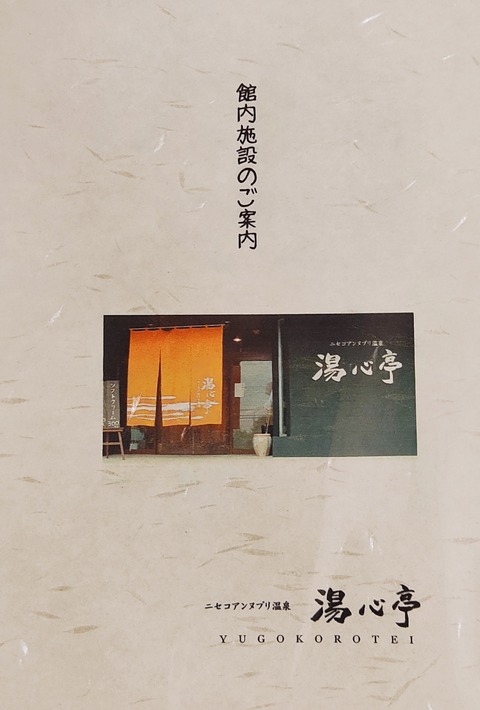 館内施設のご案内
ニセコアンヌプリ温泉
湯心亭
湯心亭
ソフトクリーム
300
ニセコアンヌプリ温泉 湯心亭
YUGOKOROTEI